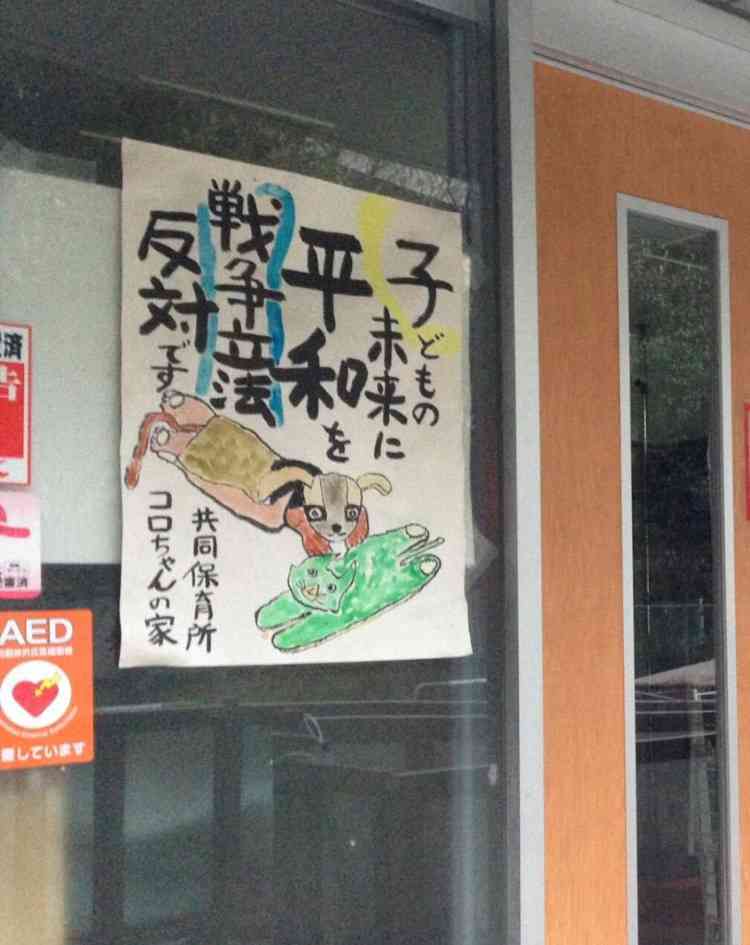 子どもの
未来に
平和を
戦争立法
反対です。
共同保育所
コロちゃんの家
済
AED
しています